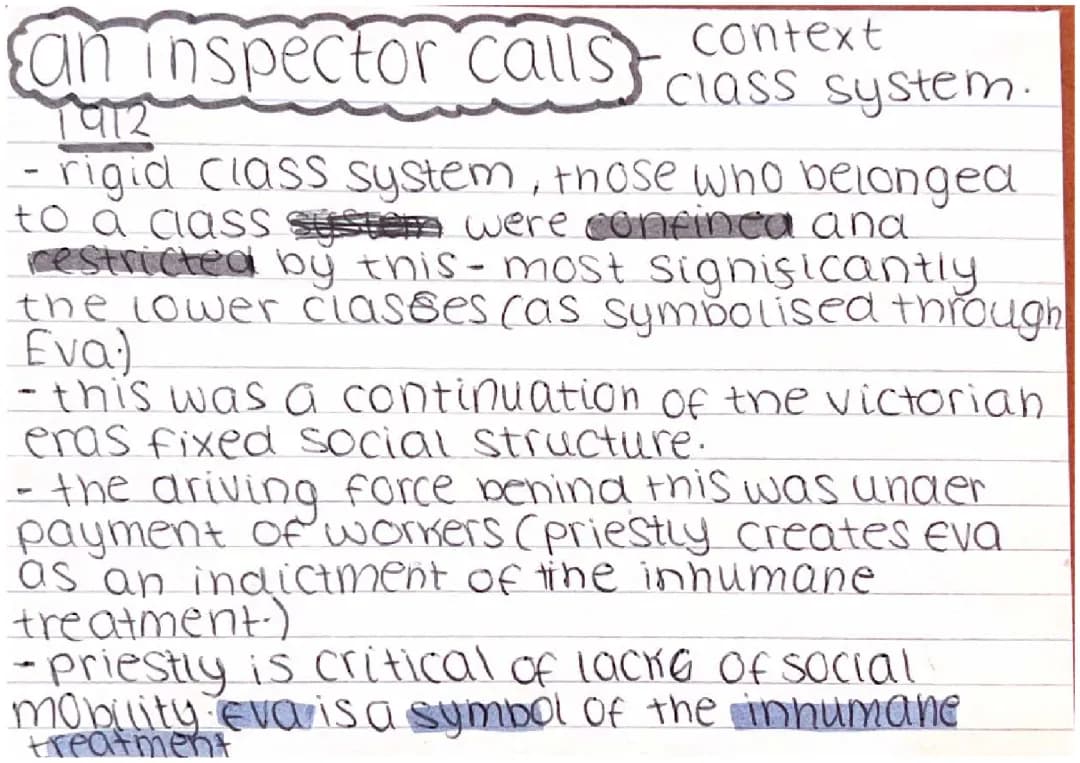 an inspector calls - context
class system.
1912
- rigid class system, those who belonged
to a class system were confined and
restricted by this - most significantly
the lower classes (as symbolised through
Eva.)
- this was a continuation of the victorian
eras fixed social structure.
- the driving force behind this was under
payment of workers (priestly creates Eva
as an indictment of the inhumane
treatment.)
- priestly is critical of lack of social
mobility. Eva is a symbol of the inhumane
treatment